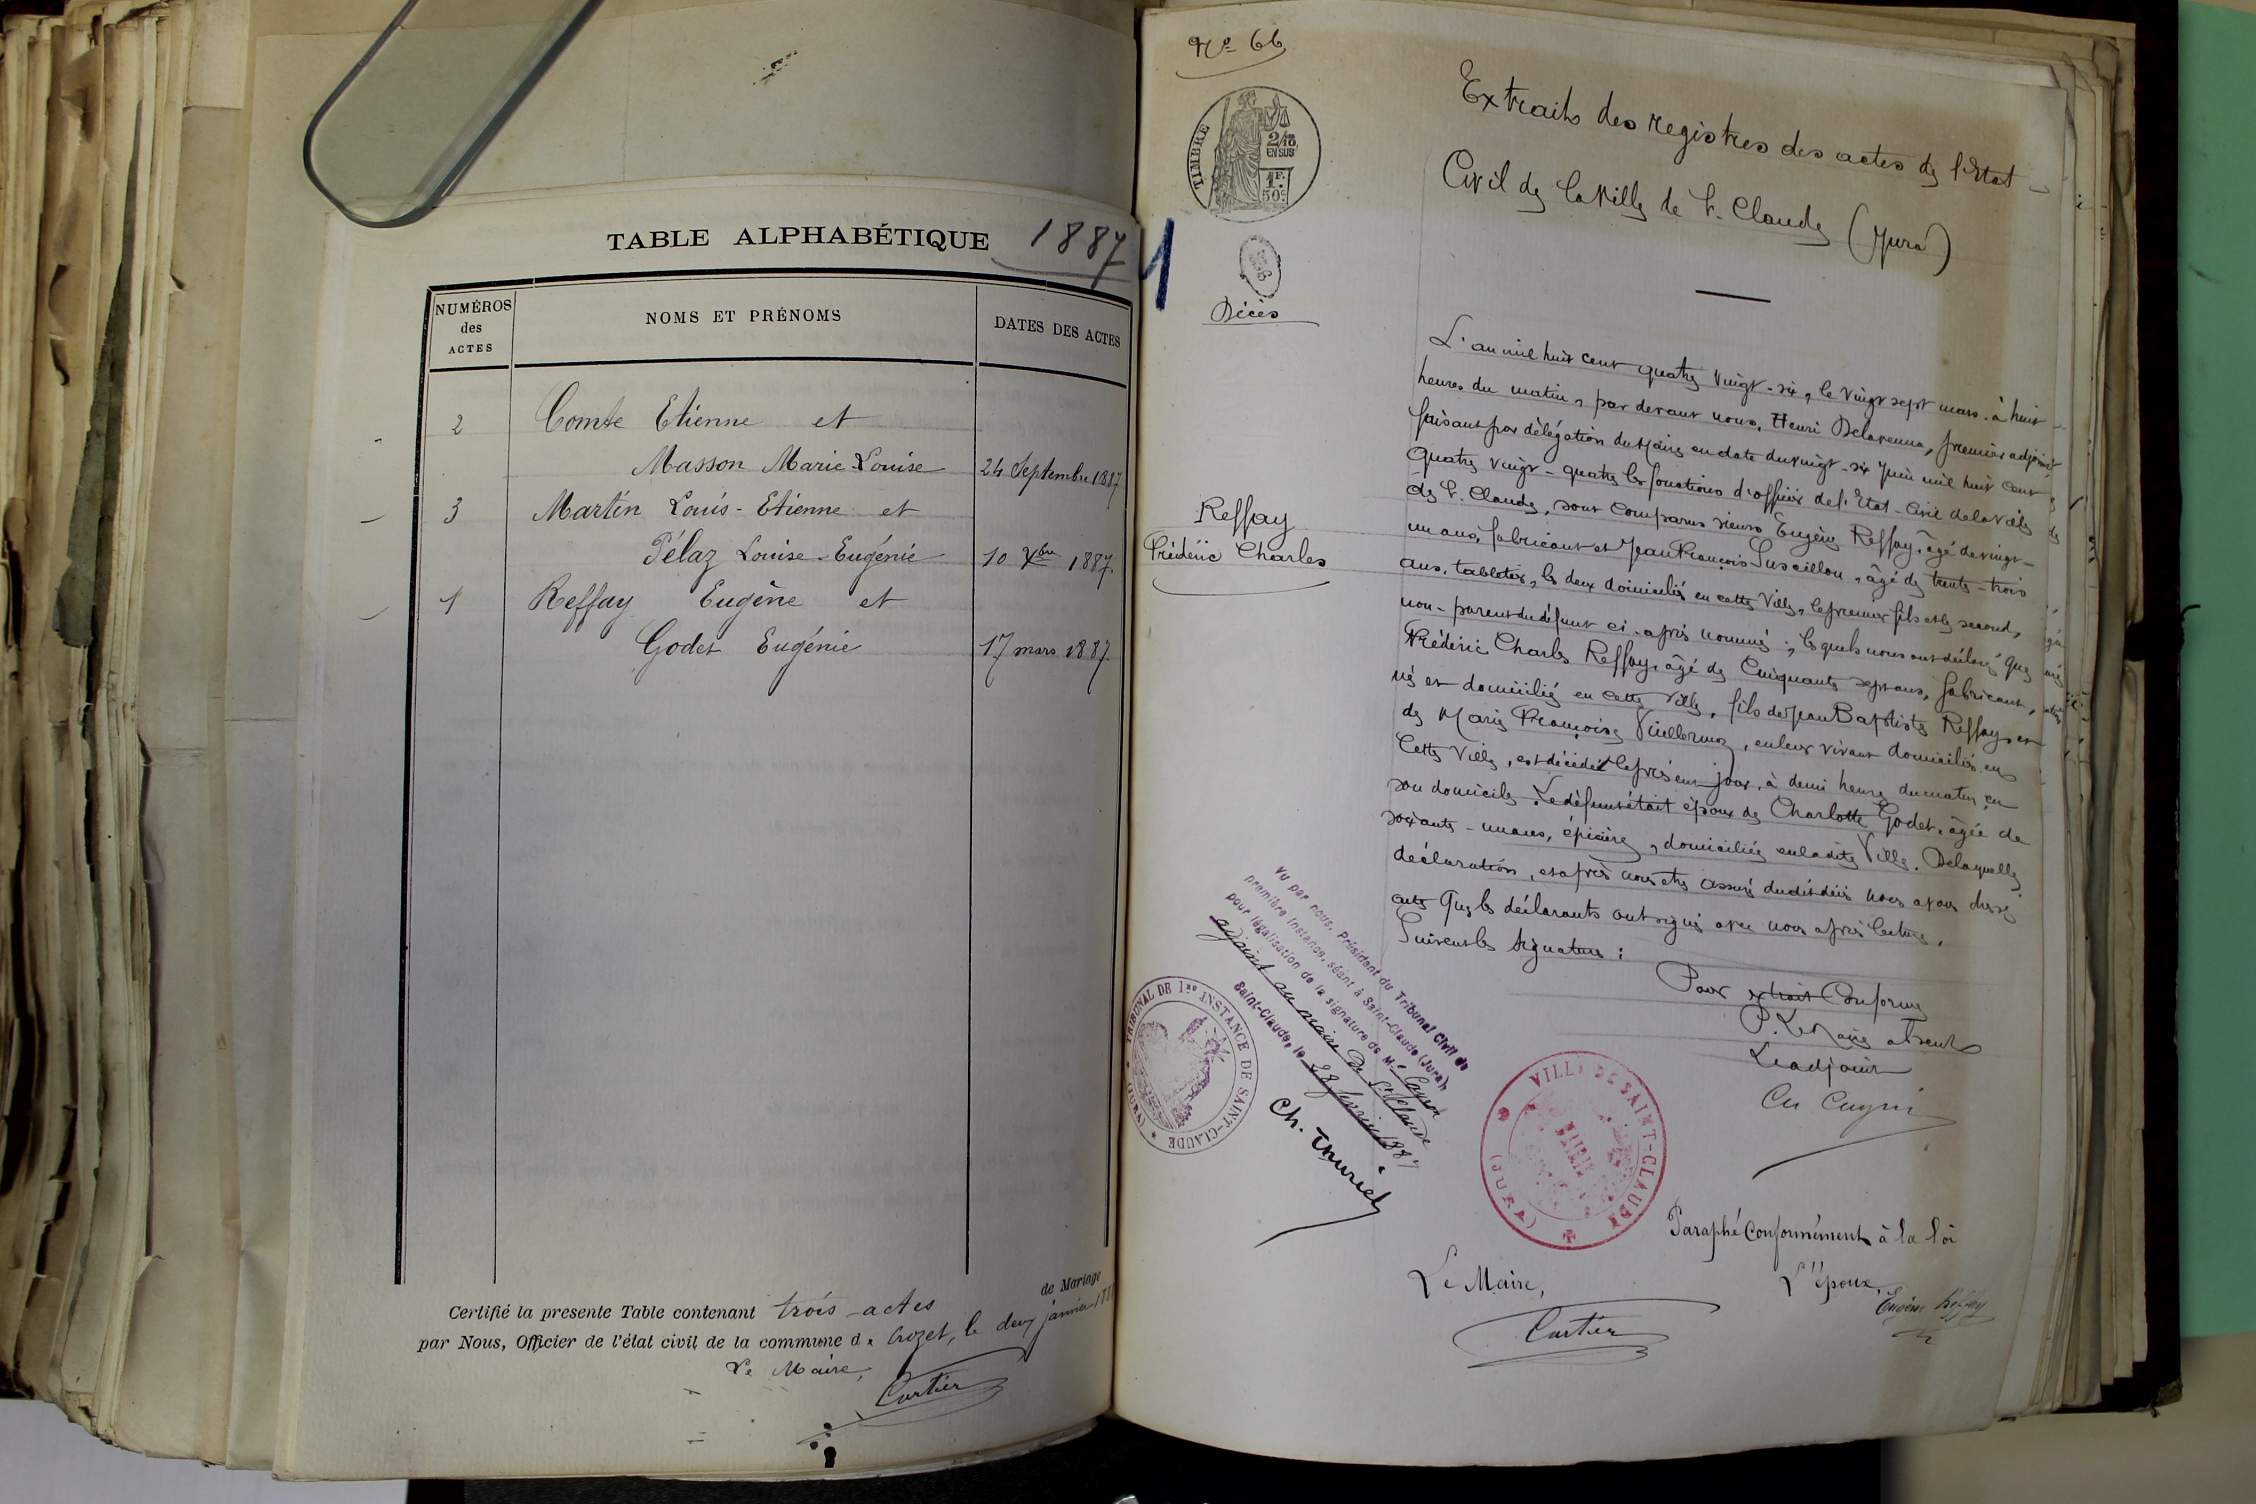 TABLE ALPHABÉTIQUE 1887
NUMÉROS des ACTES
NOMS ET PRÉNOMS
DATES DES ACTES
2 Comte Etienne et
Masson Marie Louise 24 Septembre 1887
3 Martin Louis-Etienne et
Pélaz Louise-Eugénie 10 Xbre 1887.
1 Reffay Eugène et
Godet Eugénie 17 mars 1887.
de Mariage
Certifié la presente Table contenant trois actes
par Nous, Officier de l'état civil de la commune de Crozet, le deux janvier
Le Maire,
Cartier
No 66
TIMBRE
2/10
EN SUS
1F.
50c
1
Décès
Extraits des registres des actes de l'Etat-
Civil de la Ville de St. Claude (Jura)
Reffay
Frédéric Charles
L'an mil huit cent quatre vingt-six, le vingt sept mars à huit
heures du matin, par devant nous, Henri Delavenna, premier adjoint
faisant par délégation du Maire en date du vingt-six juin mil huit cent
quatre vingt-quatre les fonctions d'officier de l'Etat-Civil de la Ville
de St. Claude, sont comparus sieurs Eugène Reffay, âgé de vingt-
un ans, fabricant et Jean François Luscillou, âgé de trente-trois
ans, tabletier, les deux domiciliés en cette Ville, le premier fils et le second,
non-parent du défunt ci-après nommé; lesquels nous ont déclaré que
Frédéric Charles Reffay, âgé de Cinquante sept ans, fabricant,
né et domicilié en cette Ville, fils de Jean Baptiste Reffay et
de Marie Françoise Vuillermoz, en leur vivant domiciliés en
Cette Ville, est décédé le présent jour, à demi heure du matin en
son domicile. Le défunt était époux de Charlotte Godet, âgée de
soixante-un ans, épicière, domiciliée en ladite Ville. De laquelle
déclaration, et après nous être assuré dudit décès nous avons dressé
acte que les déclarants ont signé avec nous après lecture.
Suivent les signatures:
Pour extrait Conforme
P. Le Maire absent
L'adjoint
Vu par nous, Président du Tribunal Civil de
première instance, séant à Saint-Claude (Jura)
pour légalisation de la signature de M.
adjoint au maire de St Claude
Saint-Claude, le 28 février 1887
TRIBUNAL DE 1RE INSTANCE DE SAINT-CLAUDE (JURA)
VILLE DE SAINT-CLAUDE (JURA)
MAIRIE
Paraphé conformément à la loi
Le Maire,
L'époux,
Cartier
Eugène Reffay